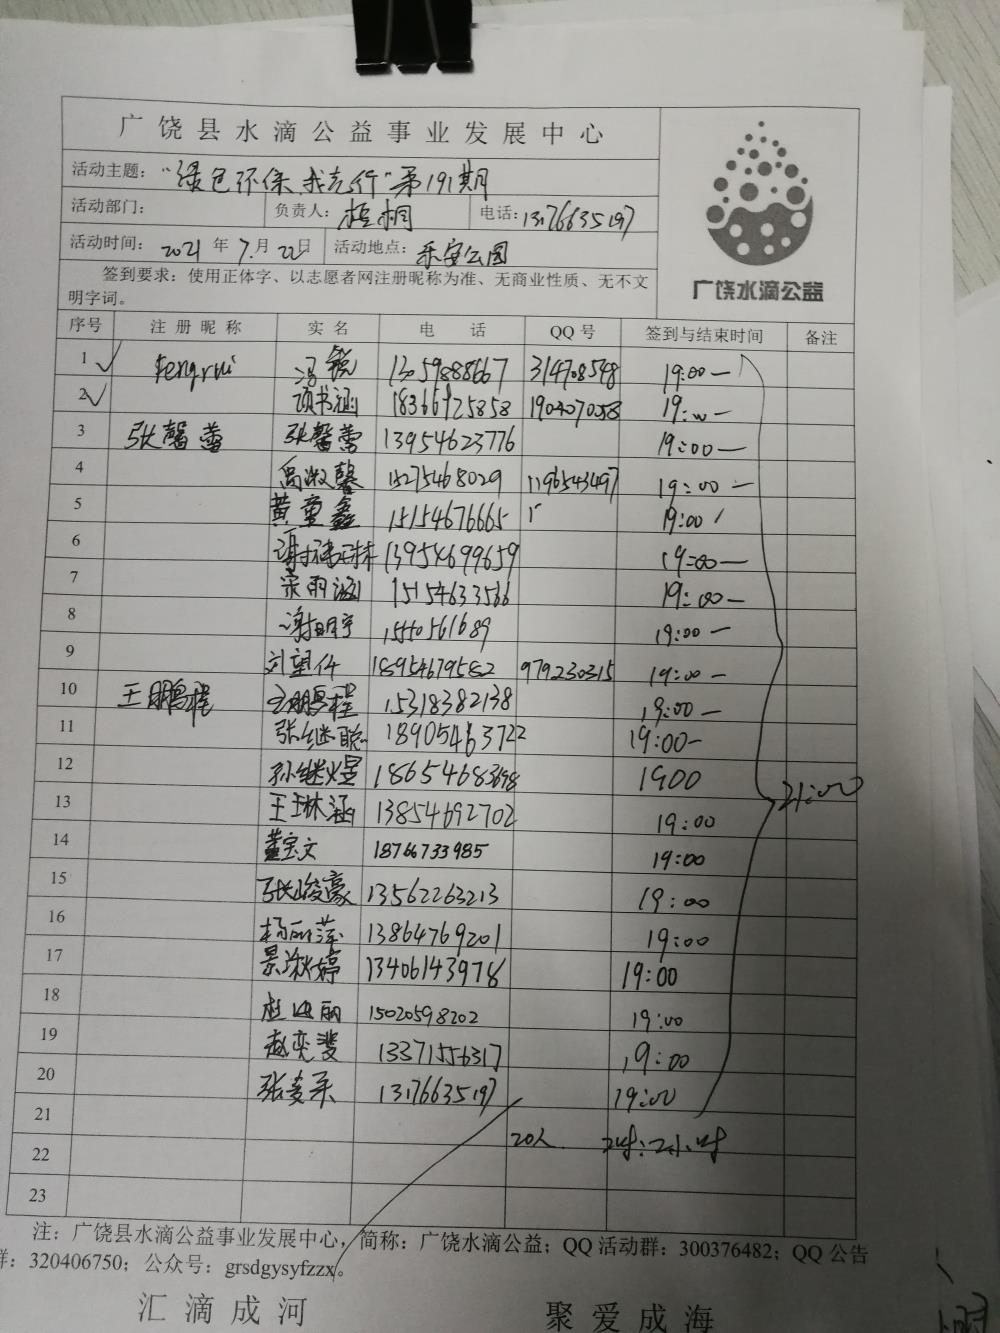 广饶县水滴公益事业发展中心
活动主题：“绿色环保 我先行”第191期
活动部门： 负责人：梧桐 电话：13176635197
活动时间：2021年7月22日 活动地点：乐安公园
签到要求：使用正体字、以志愿者网注册昵称为准、无商业性质、无不文
明字词。
广饶水滴公益
序号 注册昵称 实名 电 话 QQ号 签到与结束时间 备注
1 fengrui 冯锐 13059888667 314708548 19:00—
2 项书涵 18366925858 190407058 19:00—
3 张馨蕾 张馨蕾 13954623776 19:00—
4 禹淑馨 15275468029 1196543497 19:00—
5 黄童鑫 15154676665 19:00
6 13954699659 19:00—
7 宋雨涵 15154633566 19:00—
8 谢明宇 15550561689 19:00—
9 刘望仟 18954679582 979230315 19:00—
10 王鹏程 王鹏程 15318382138 19:00—
11 张继聪 18905463722 19:00—
12 孙继煜 18654683698 1900
13 王琳涵 13854692702 19:00
14 董宝文 18766733985 19:00
15 张峻豪 13562263213 19:00
16 杨丽萍 13864769201 19:00
17 景淑婷 13406143978 19:00
18 杜 丽 15020598202 19:00
19 赵奕斐 13371556317 19:00
20 张麦禾 13176635197 19:00
21:00
21
20人 2小时
22
23
注：广饶县水滴公益事业发展中心，简称：广饶水滴公益；QQ活动群：300376482；QQ公告
群：320406750；公众号：grsdgysyfzzx。
汇滴成河 聚爱成海